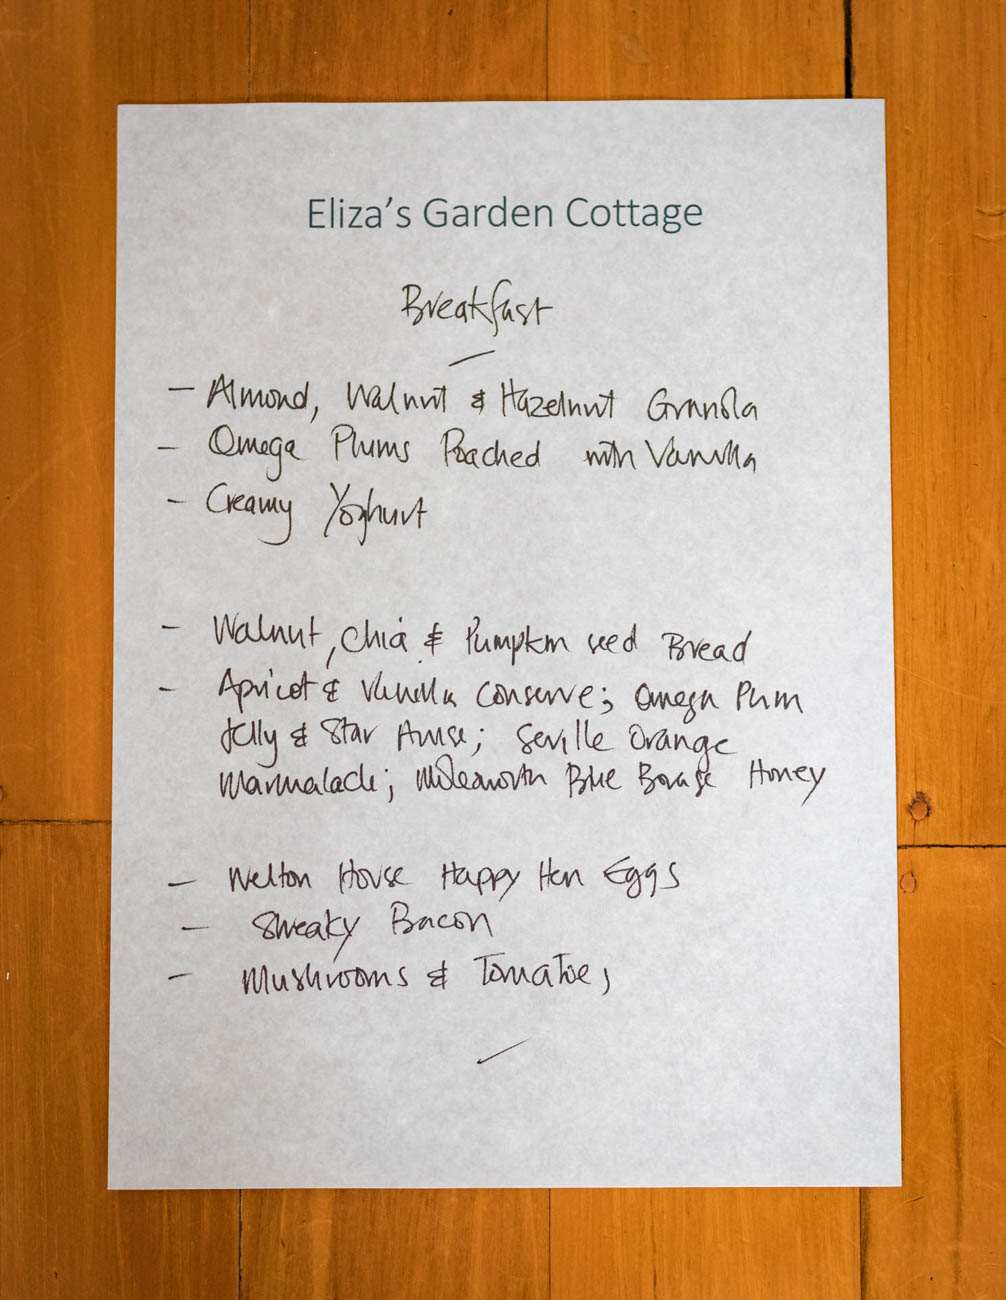 Eliza's Garden Cottage
Breakfast
- Almond, Walnut & Hazelnut Granola
- Omega Plums Poached with Vanilla
- Creamy Yoghurt
- Walnut, Chia & Pumpkin seed Bread
- Apricot & Vanilla Conserve; Omega Plum
Jelly & Star Anise; Seville Orange
Marmalade; Blue Borage Honey
- Welton House Happy Hen Eggs
- Streaky Bacon
- Mushrooms & Tomatoes